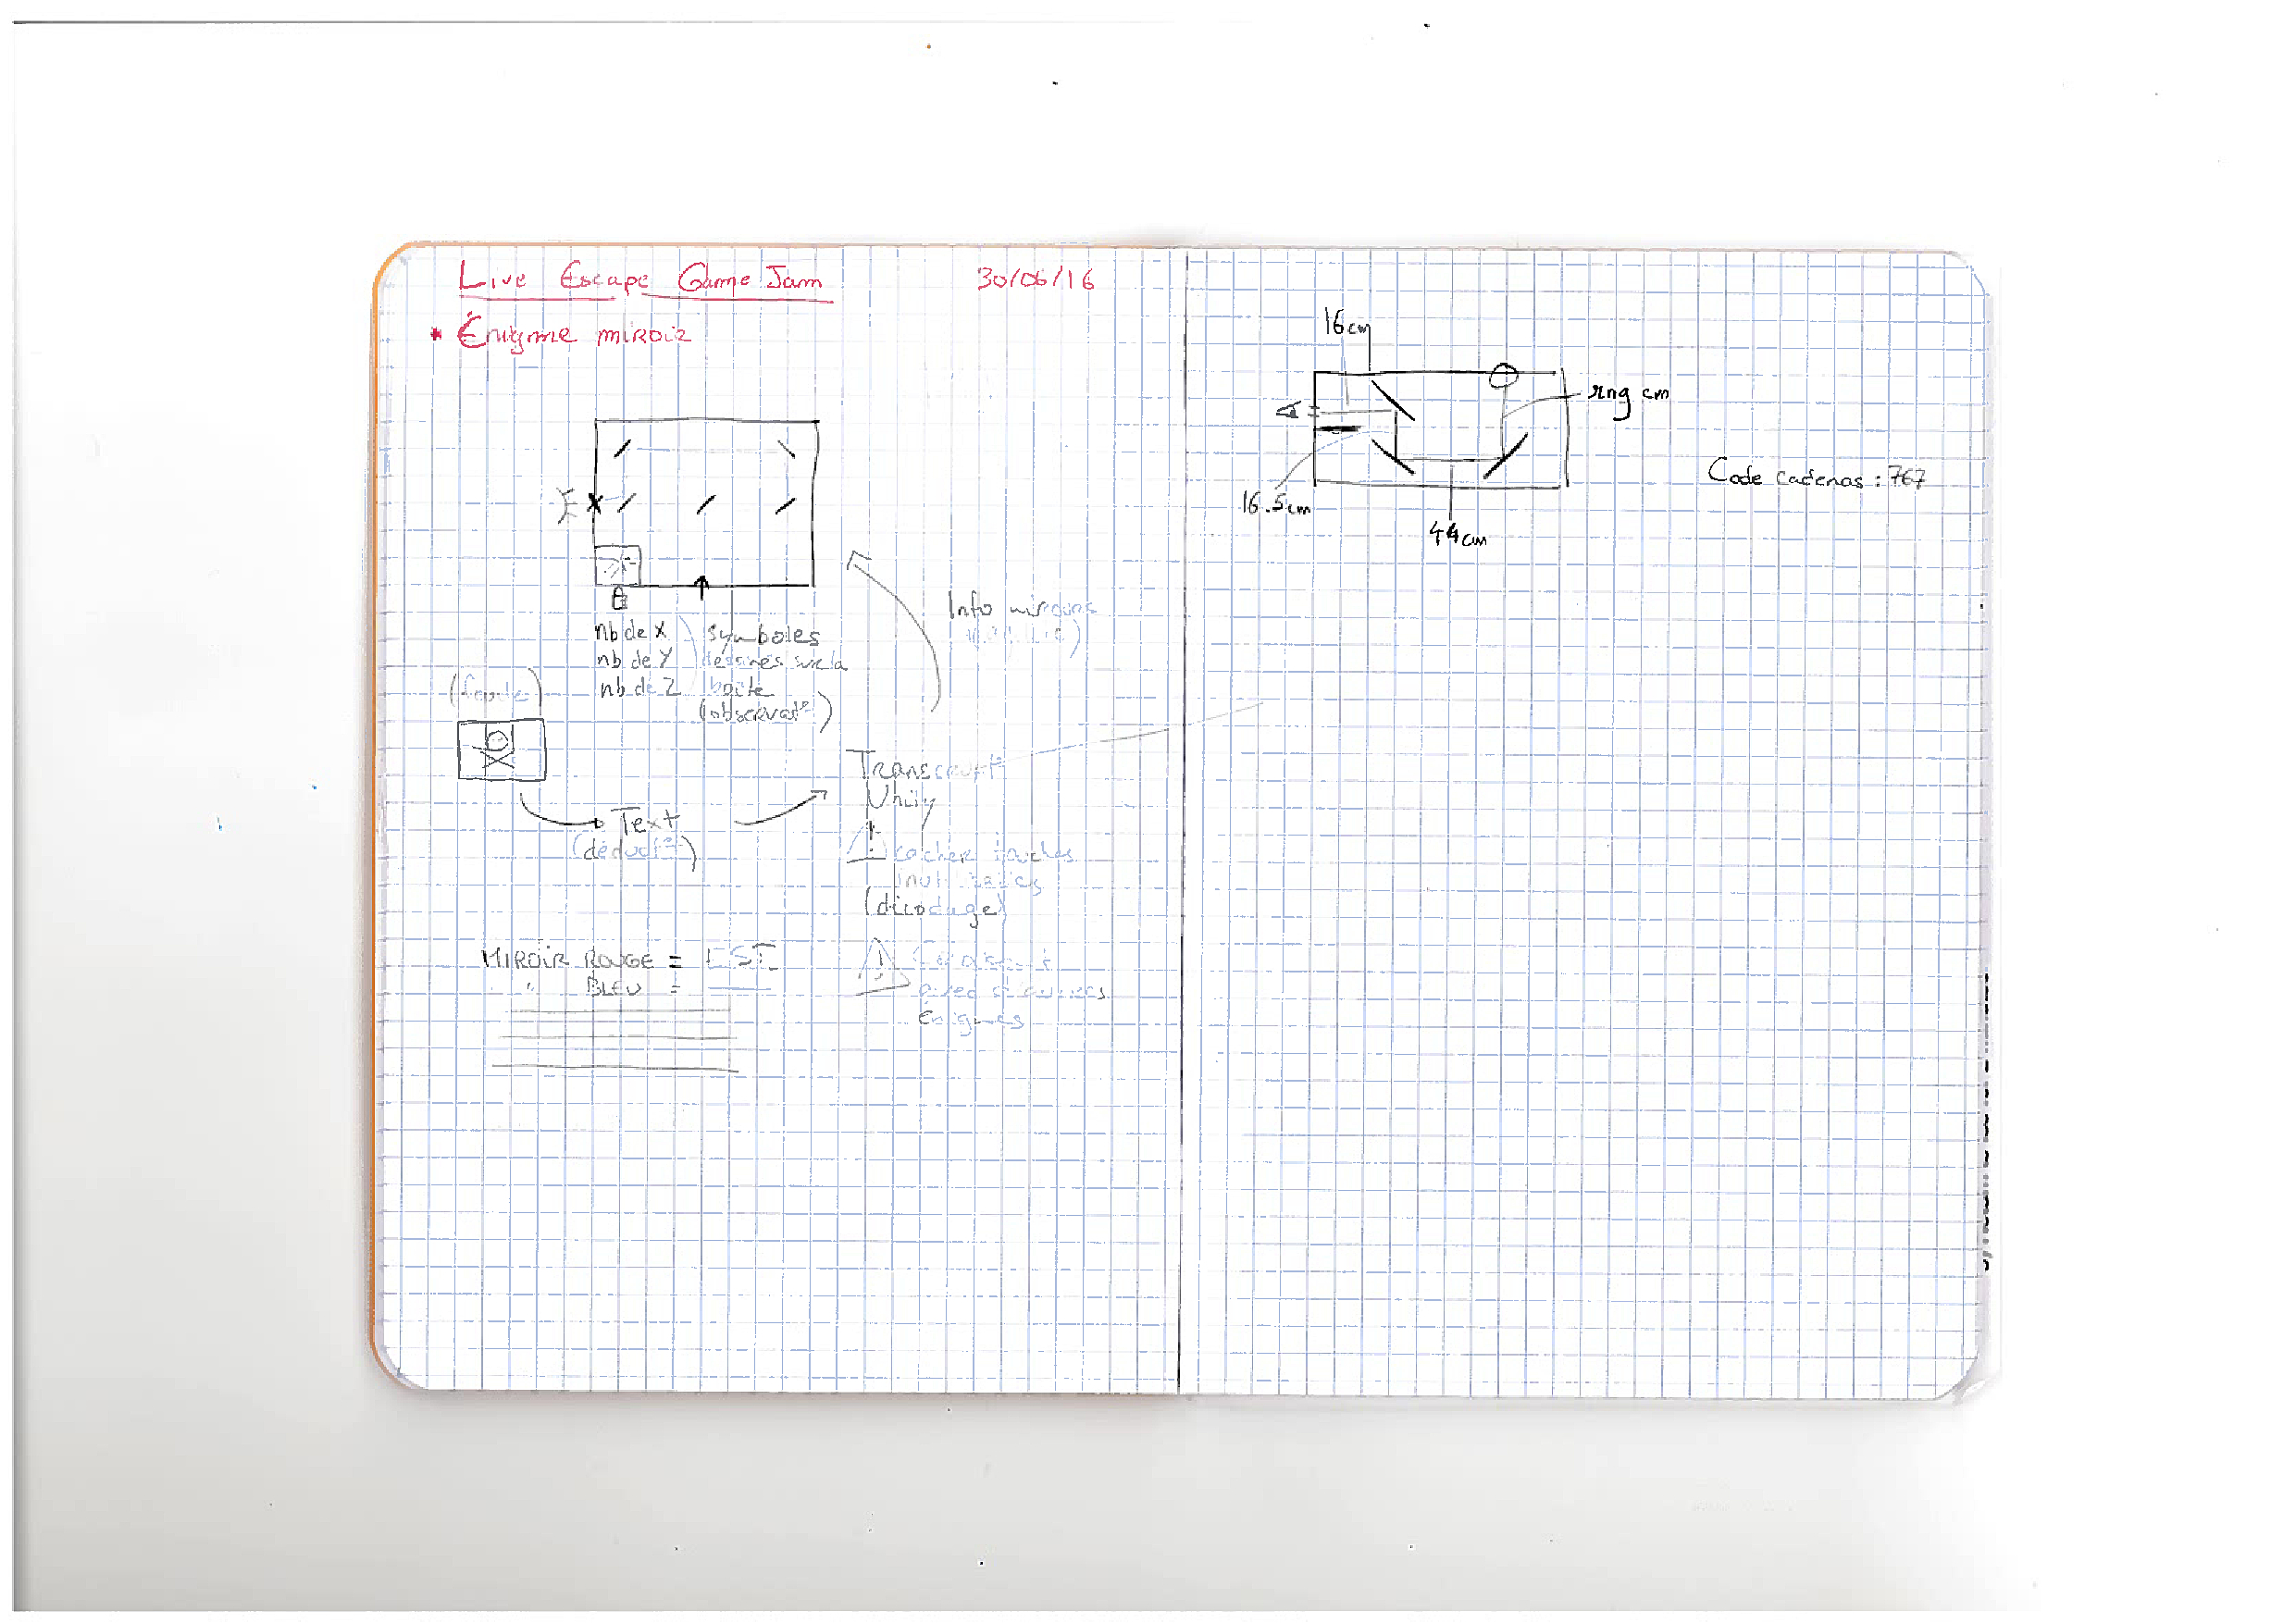 Live Escape Game Jam 30/06/16
* Énigme miroir
nb de X
nb de Y
nb de Z
symboles
dessinés sur la
boîte
(observat°)
Info miroirs
Text
(déduct°)
Transcript
Unity
! cacher touches
inutilisables
(décodage)
MIROIR ROUGE = EST
" BLEU =
!
avec d'autres
énigmes
16cm
16.5cm
44cm
cm
Code cadenas : 767